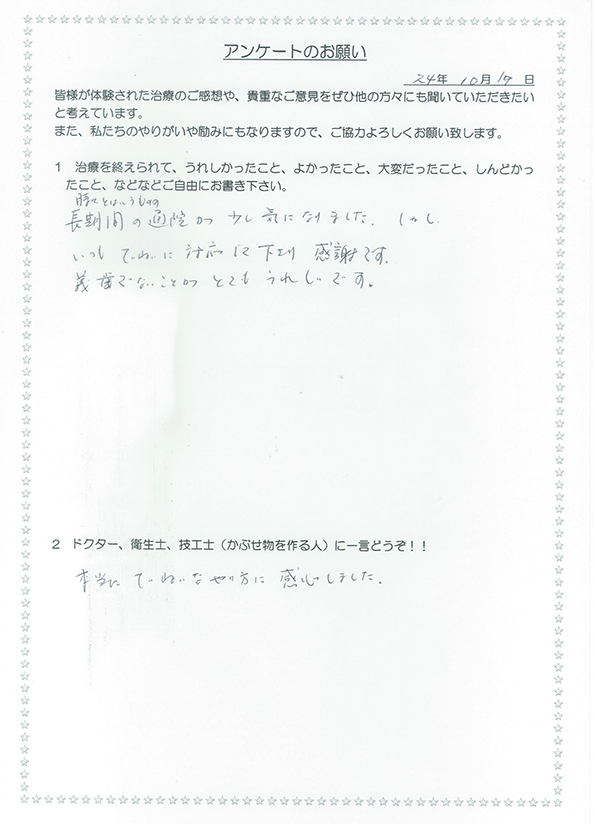 アンケートのお願い
24年 10月 17日
皆様が体験された治療のご感想や、貴重なご意見をぜひ他の方々にも聞いていただきたい
と考えています。
また、私たちのやりがいや励みにもなりますので、ご協力よろしくお願い致します。
1 治療を終えられて、うれしかったこと、よかったこと、大変だったこと、しんどかっ
たこと、などなどご自由にお書き下さい。
時々とはいうものの
長期間の通院が少し気になりました。しかし
いつもていねいに対応して下さり感謝です。
義歯でないことがとてもうれしいです。
2 ドクター、衛生士、技工士（かぶせ物を作る人）に一言どうぞ！！
本当にていねいなやり方に感心しました。